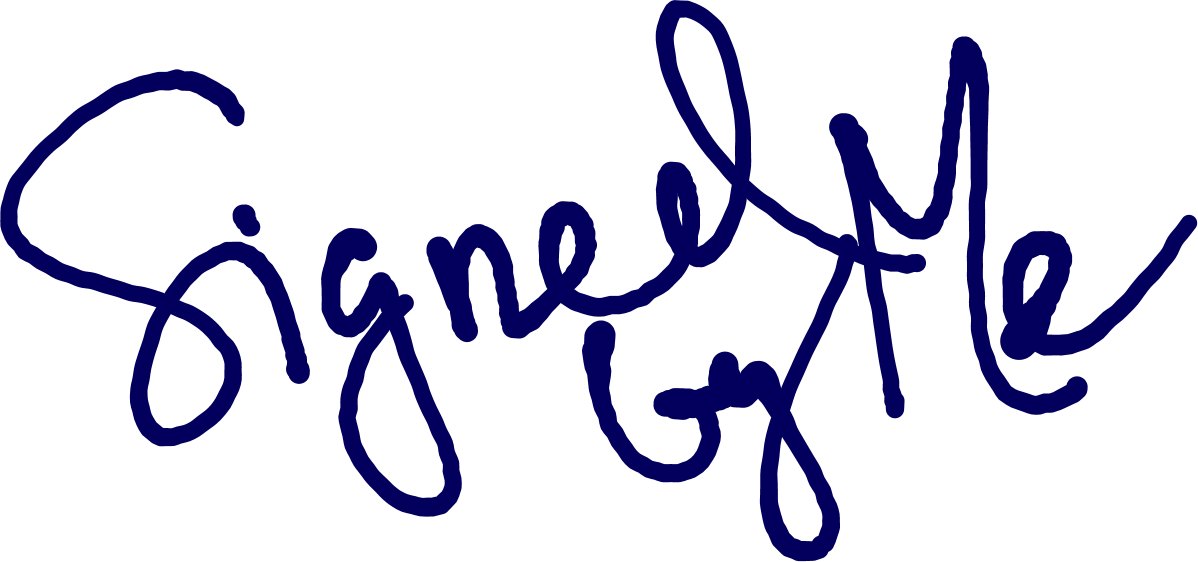 Signed by Me